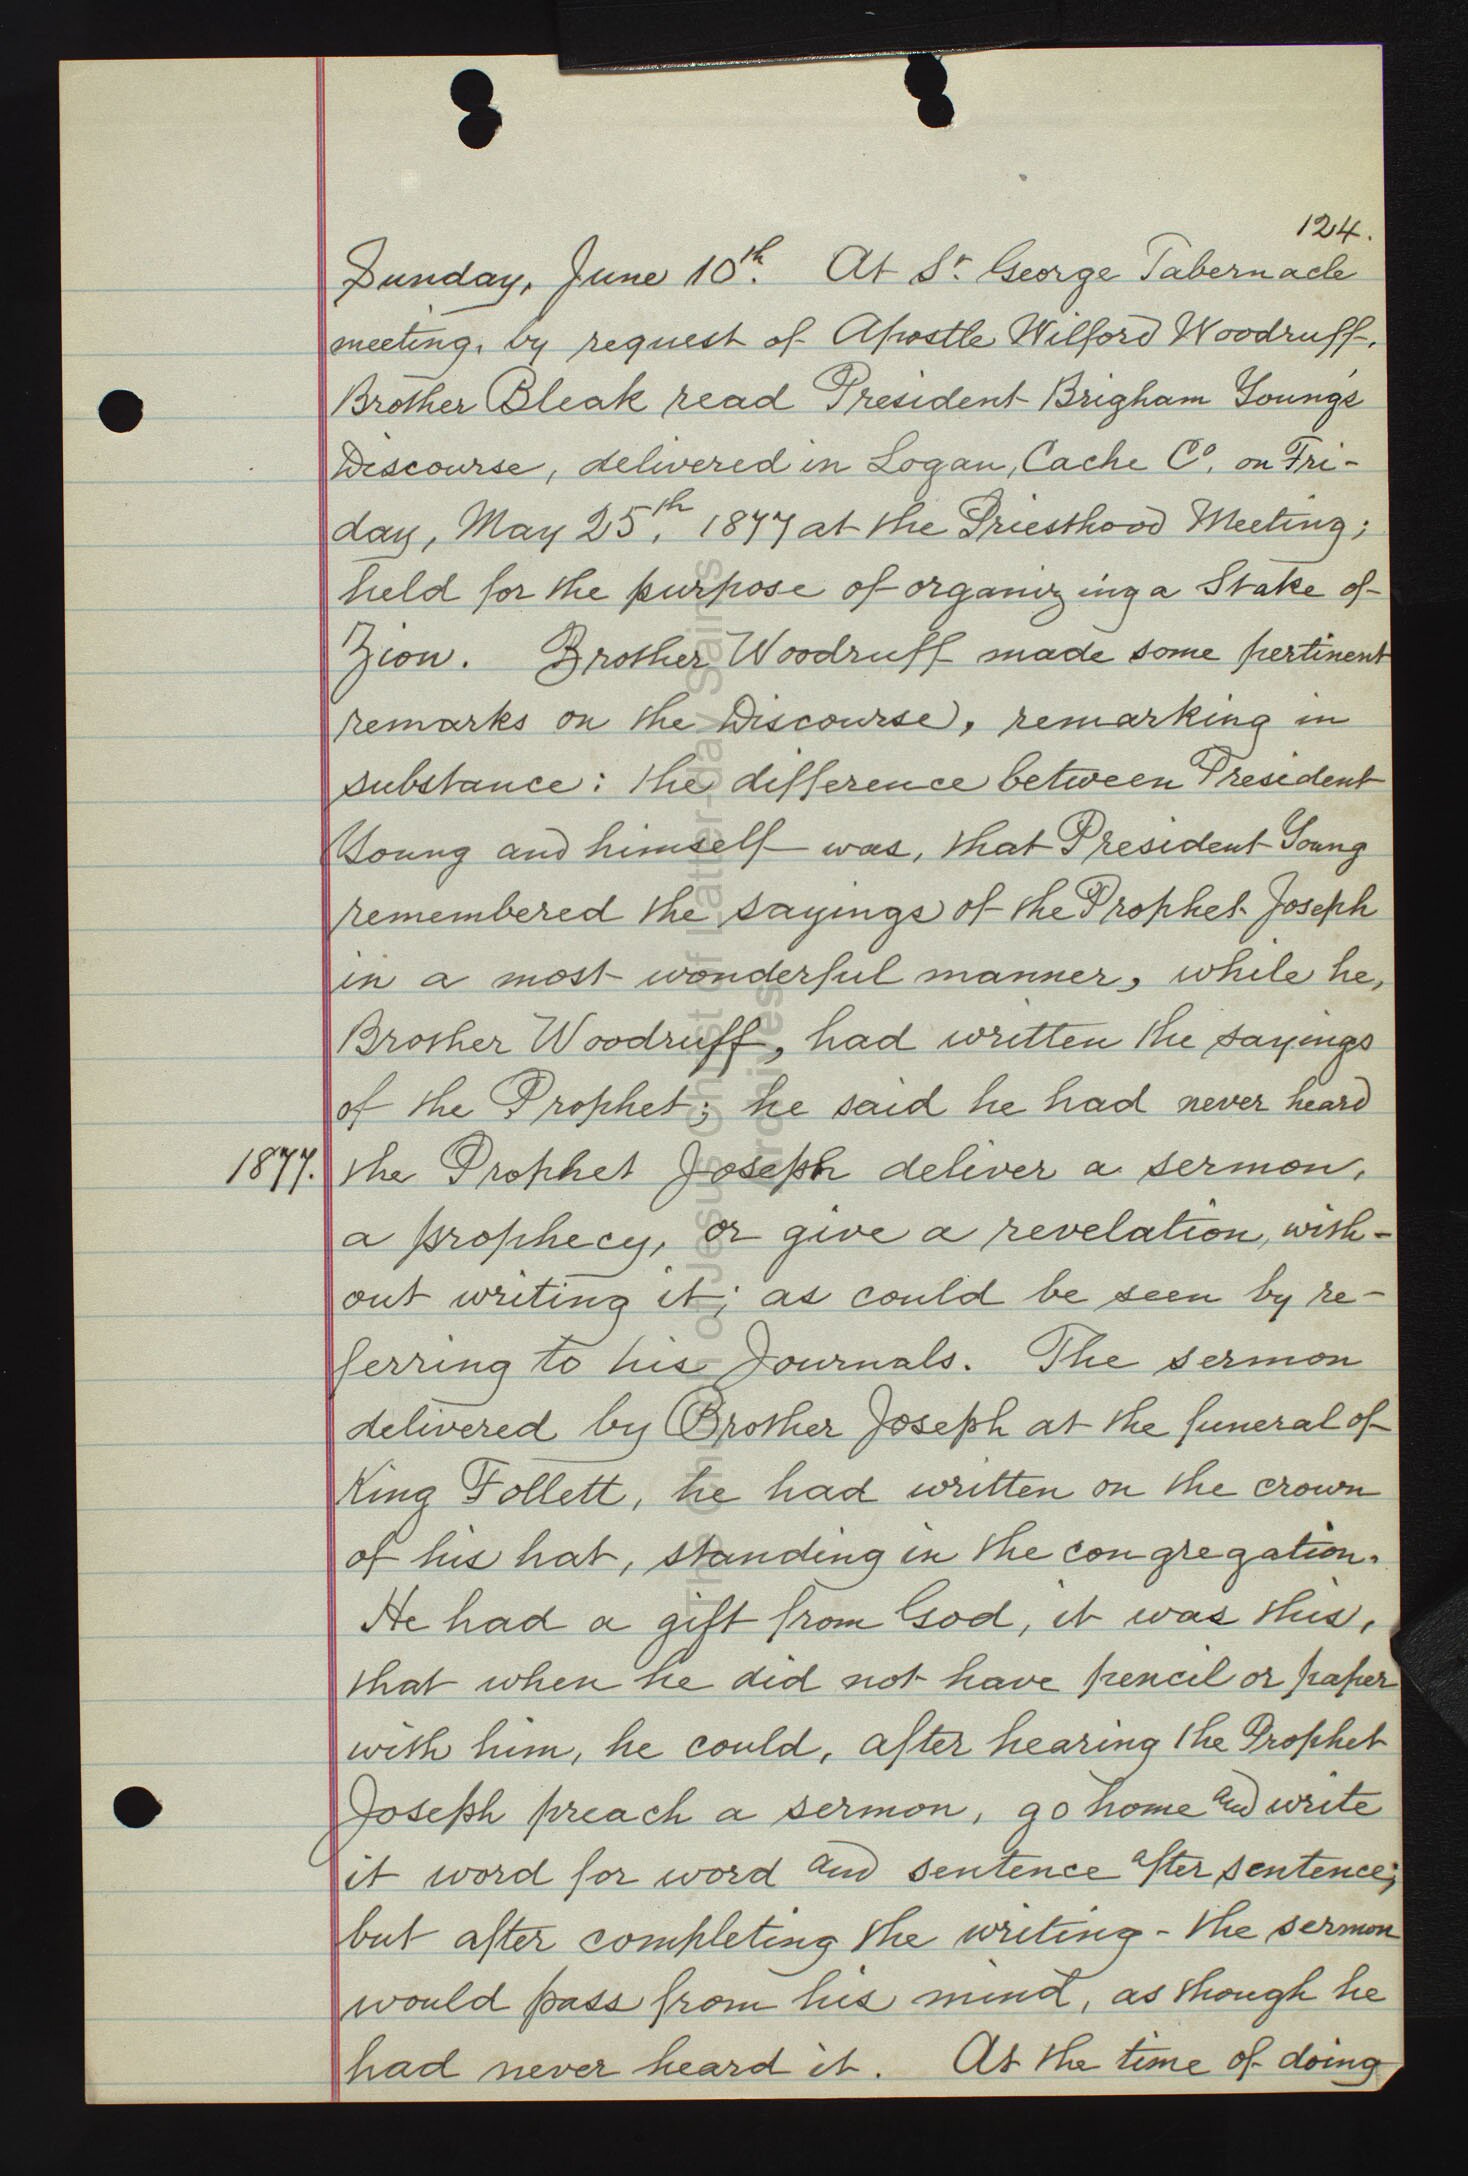 124.
Sunday, June 10th. At St. George Tabernacle
meeting, by request of Apostle Wilford Woodruff,
Brother Bleak read President Brigham Young's
Discourse, delivered in Logan, Cache Co. on Fri-
day, May 25th, 1877 at the Priesthood Meeting;
held for the purpose of organizing a Stake of
Zion. Brother Woodruff made some pertinent
remarks on the Discourse, remarking in
substance: the difference between President
Young and himself was, that President Young
remembered the sayings of the Prophet Joseph
in a most wonderful manner, while he,
Brother Woodruff, had written the sayings
of the Prophet; he said he had never heard
1877. the Prophet Joseph deliver a sermon,
a prophecy, or give a revelation, with-
out writing it; as could be seen by re-
ferring to his Journals. The sermon
delivered by Brother Joseph at the funeral of
King Follett, he had written on the crown
of his hat, standing in the congregation.
He had a gift from God, it was this,
that when he did not have pencil or paper
with him, he could, after hearing the Prophet
Joseph preach a sermon, go home and write
it word for word and sentence after sentence;
but after completing the writing - the sermon
would pass from his mind, as though he
had never heard it. At the time of doing
The Church of Jesus Christ of Latter-day Saints
Archives